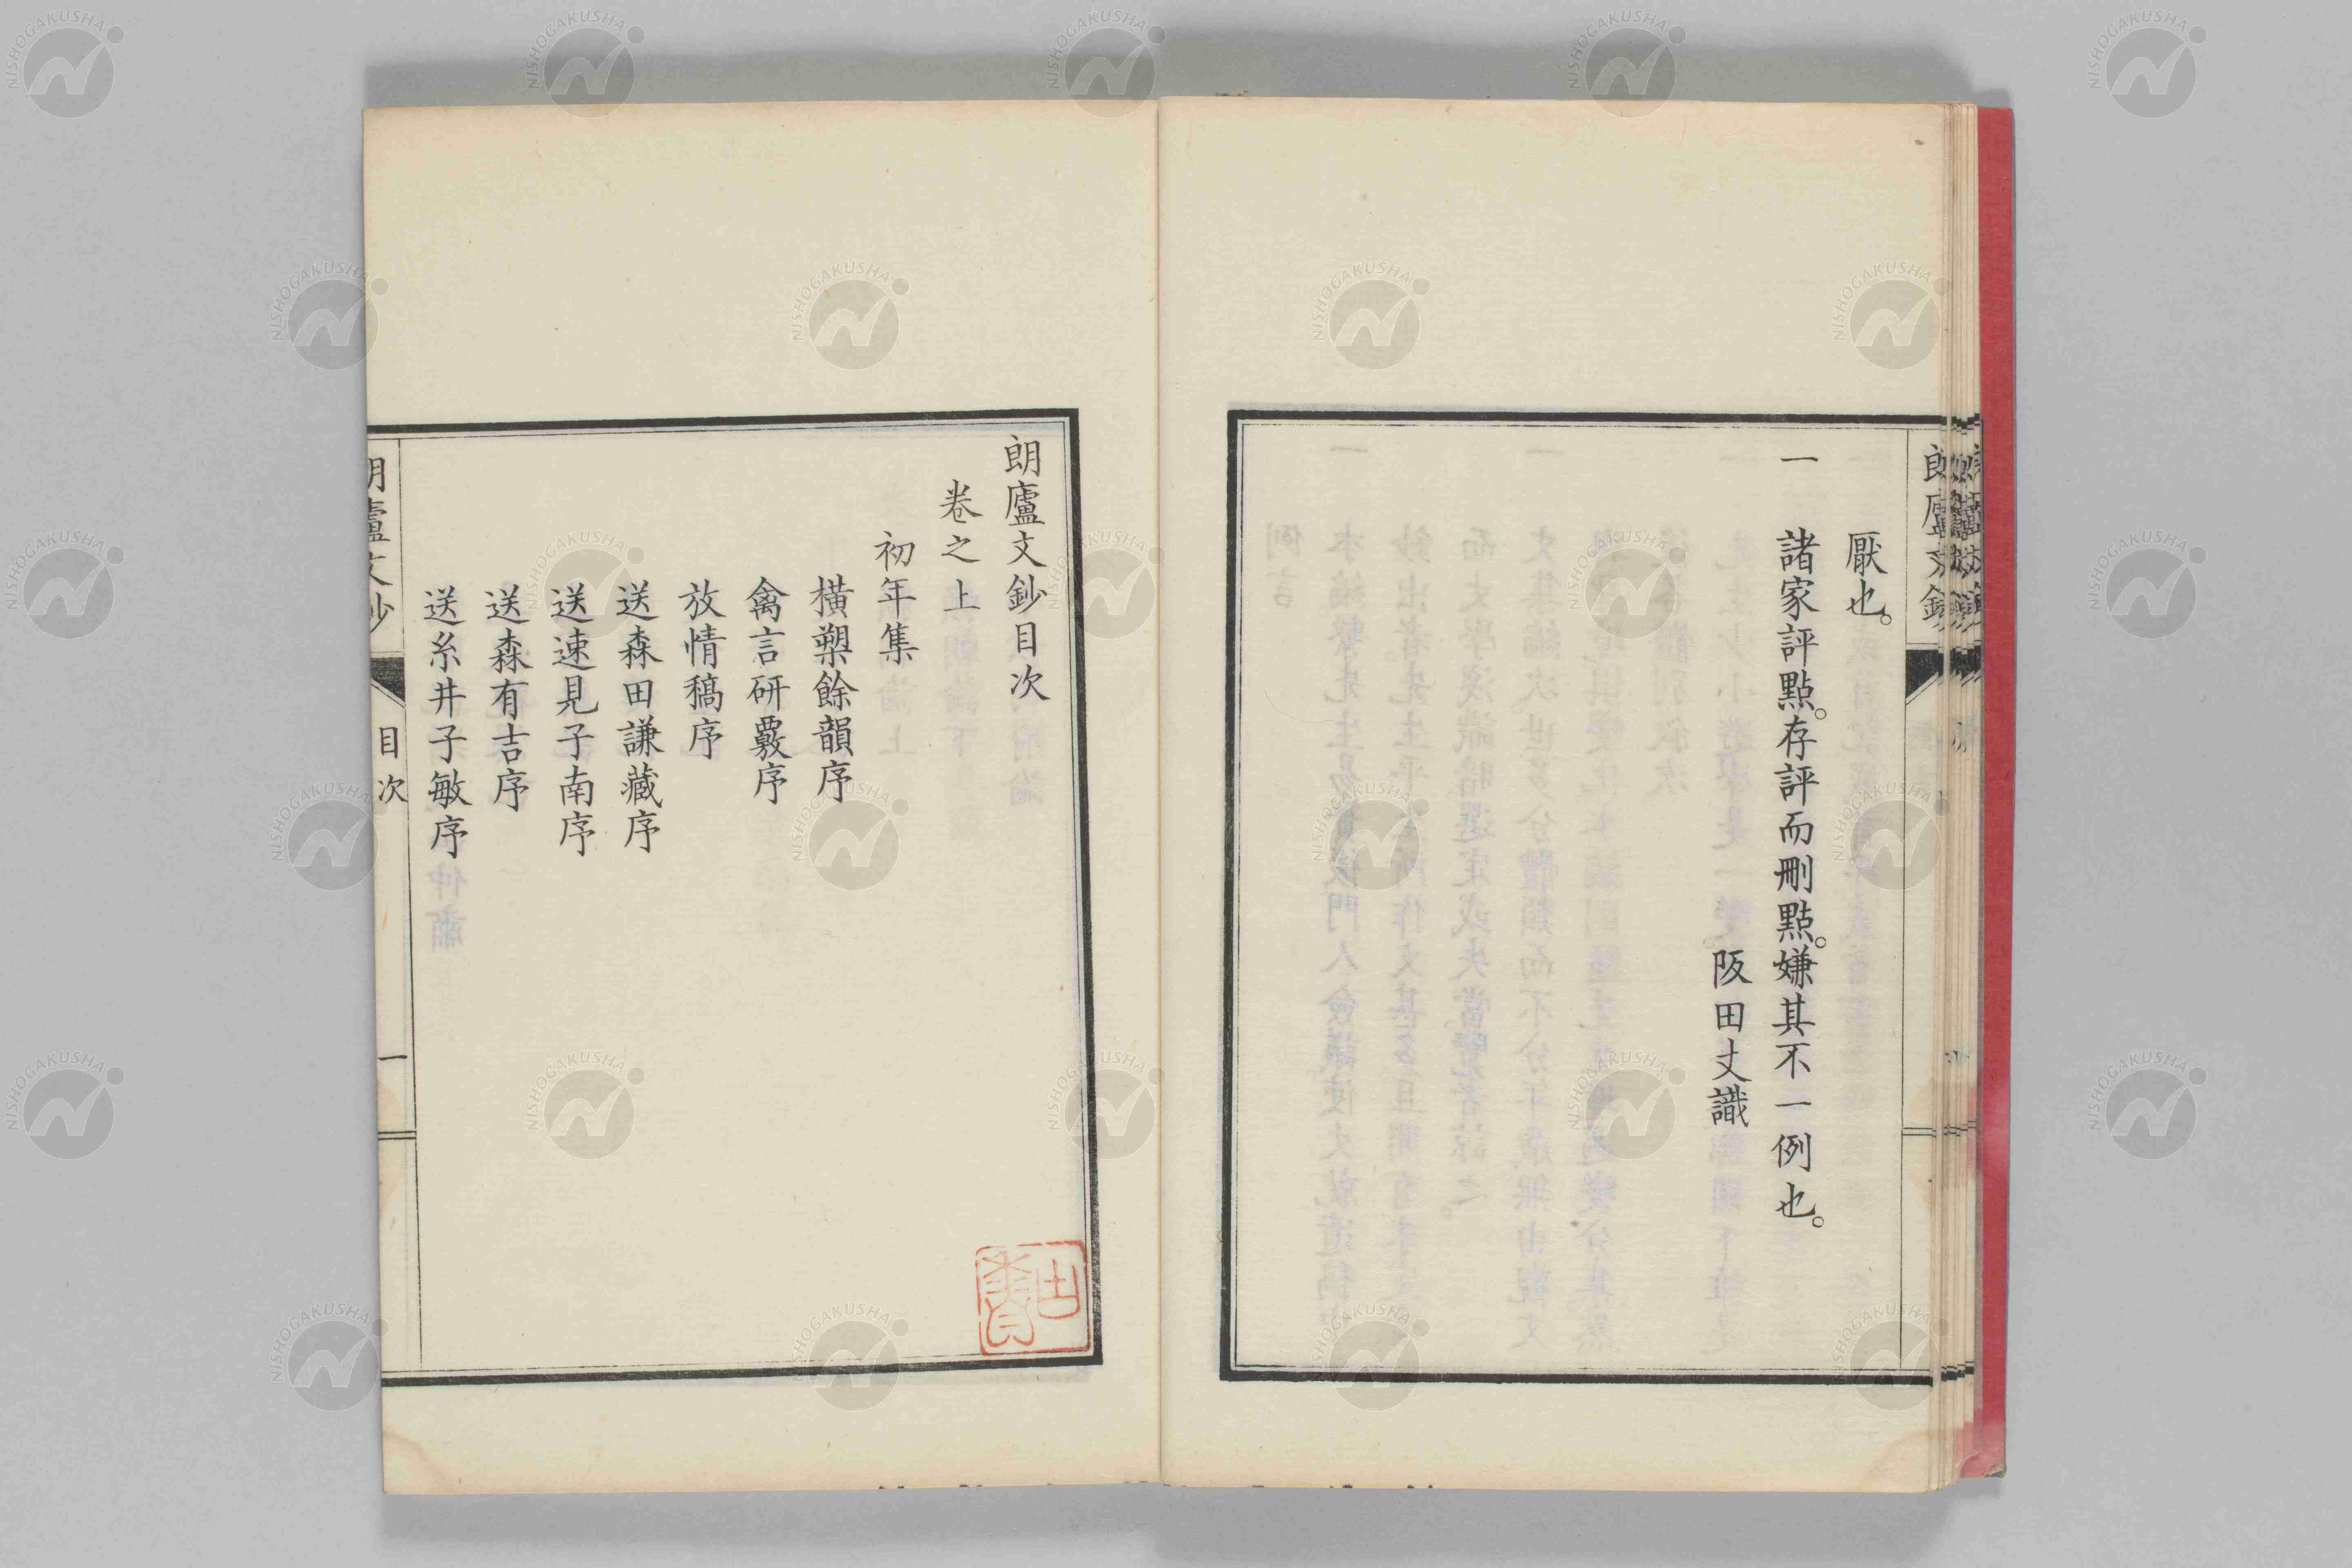 厭也。
一 諸家評點。存評而刪點。嫌其不一例也。
阪田丈識
朗廬文鈔目次
卷之上
初年集
橫槊餘韻序
禽言研覈序
放情稿序
送森田謙藏序
送速見子南序
送森有吉序
送糸井子敏序
朗廬文鈔
目次
一
NISHOGAKUSHA